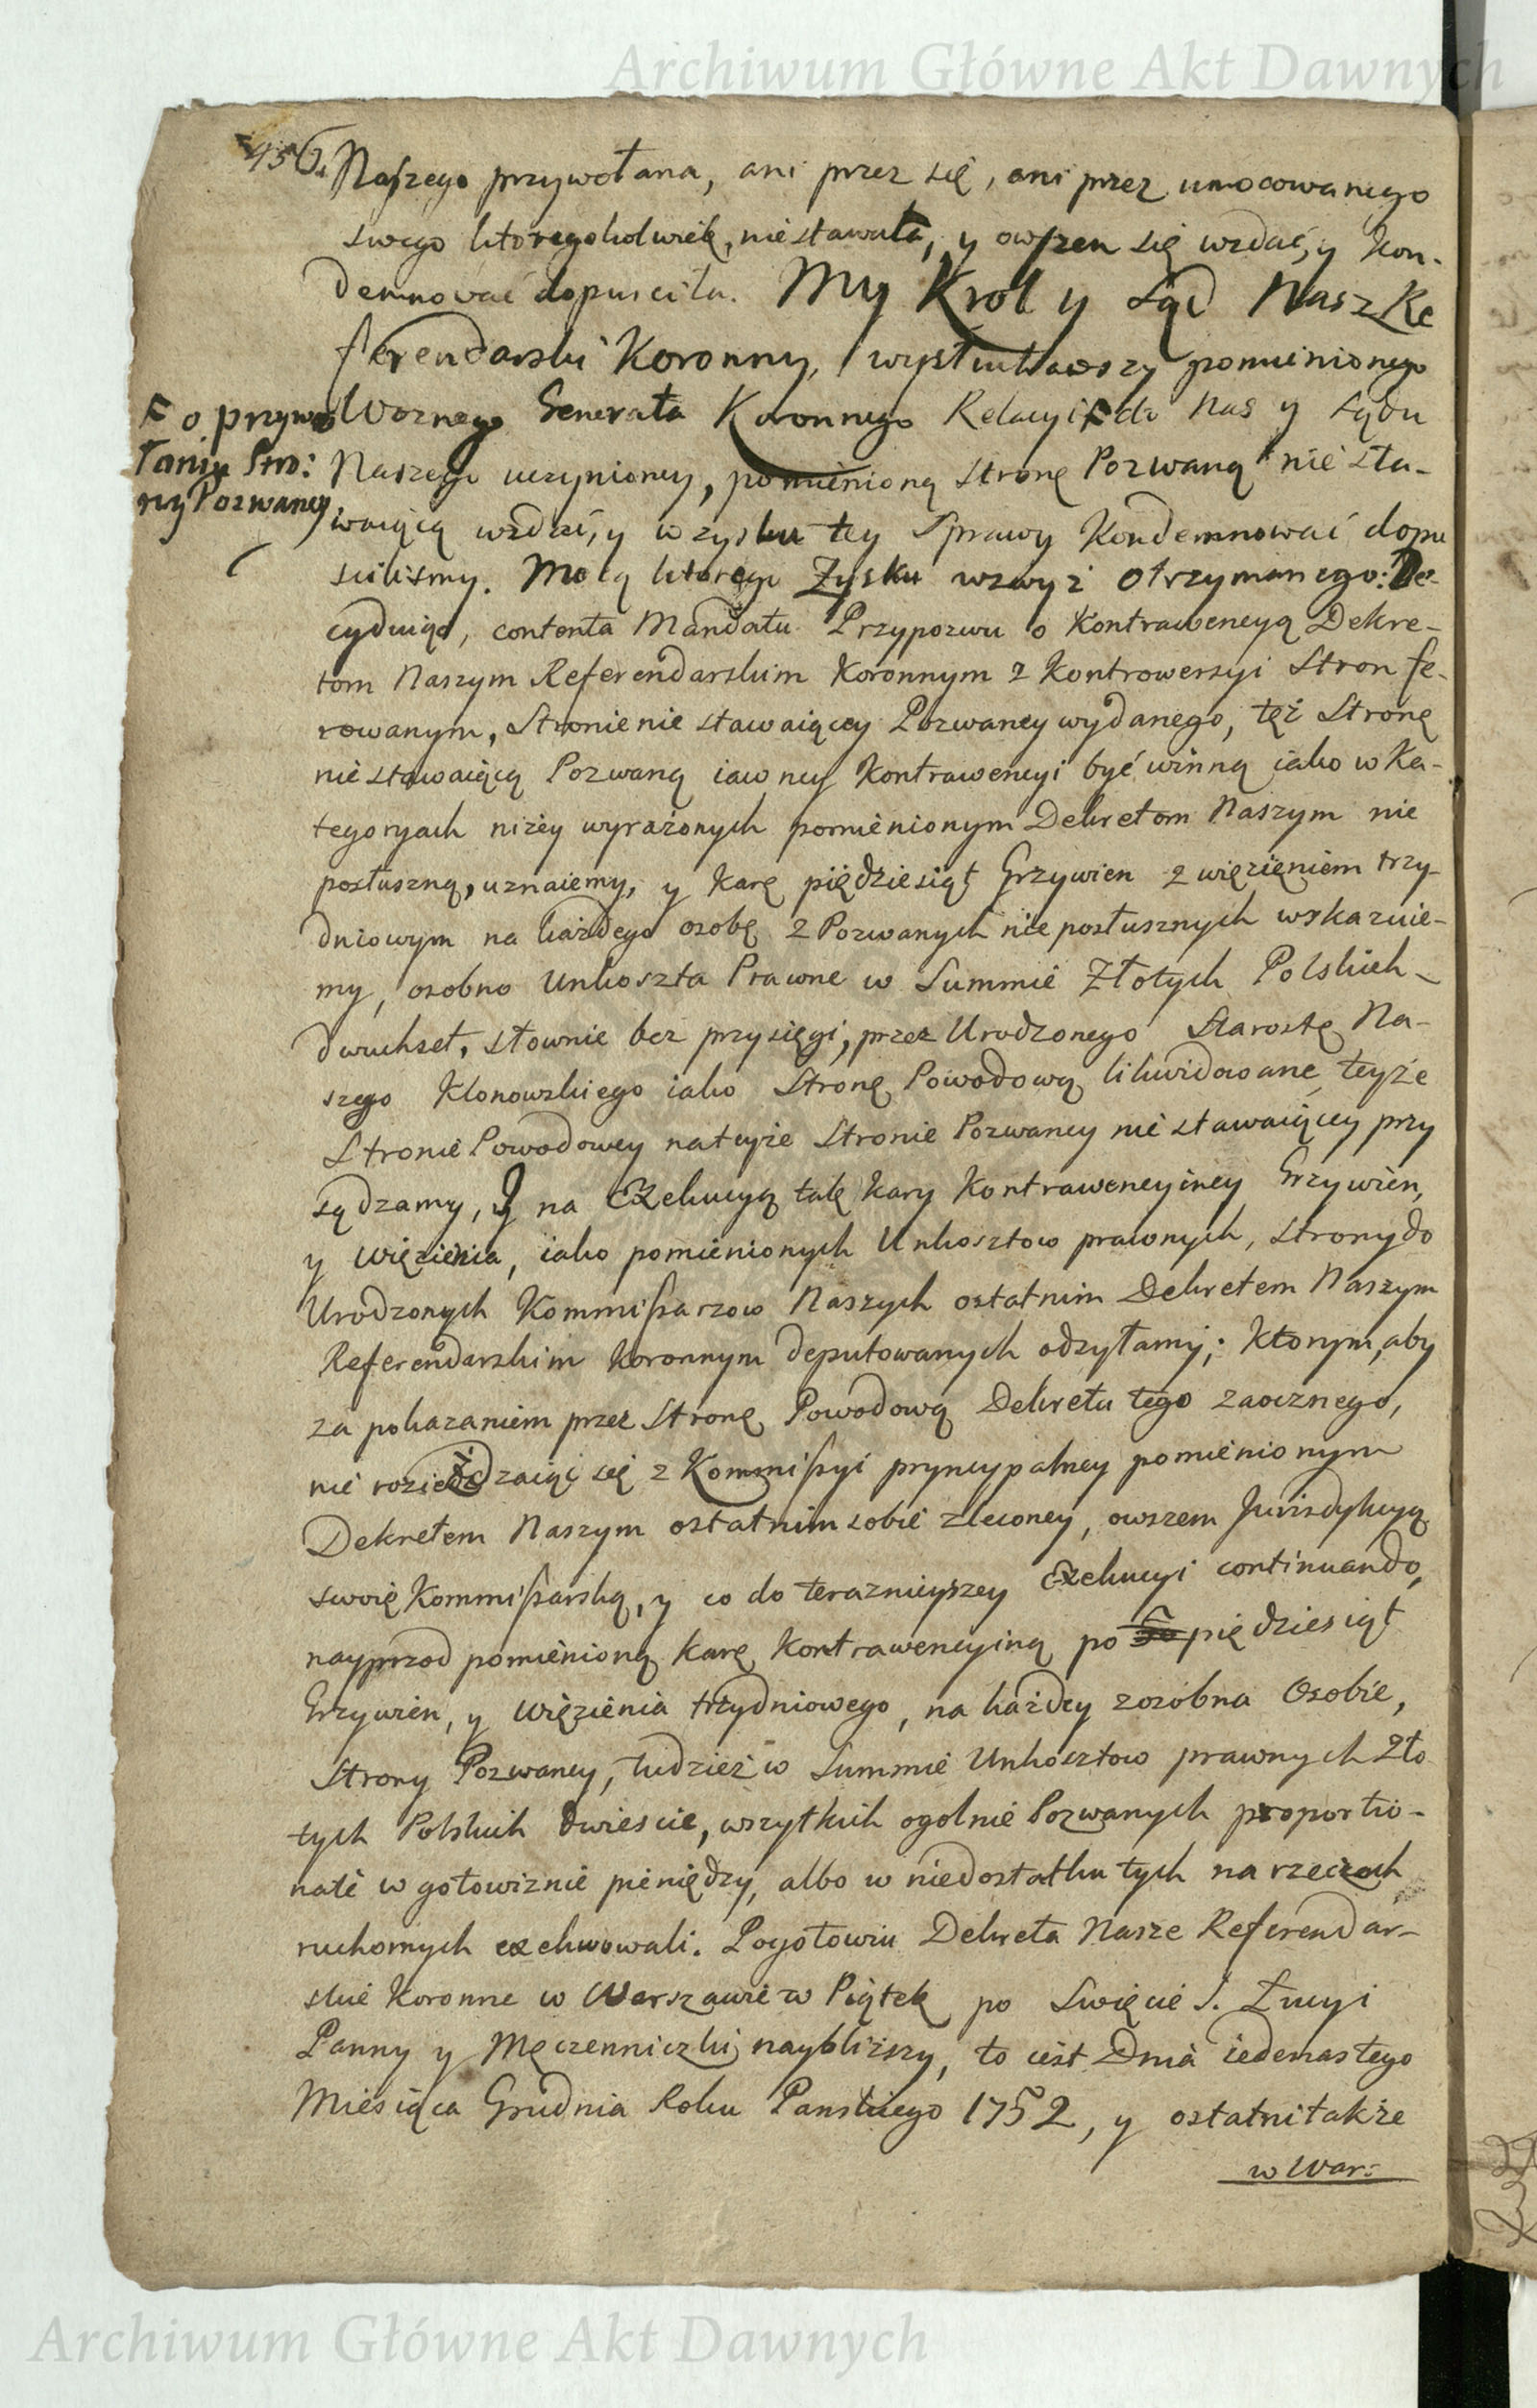 Archiwum Główne Akt Dawnych
456.
Naszego przywołana, ani przez się, ani przez umocowanego
swego ktoregokolwiek, nie stawała, y owszem się wzdać, y kon-
demnować dopusciła. My Krol y Sąd Nasz Re
ferendarski Koronny, wysłuchawszy pomienionego
Woznego Generała Koronnego Relacyi F do Nas y Sądu
F o przywo
łaniu Stro:
ny Pozwaney
Naszego uczynioney, pomienioną Stronę Pozwaną nie sta-
waiącą wzdać, y w zysku tey Sprawy Kondemnować dopu
scilismy. Mocą ktorego Zysku wzwyż otrzymanego: De-
cyduiąc, contenta Mandatu Przypozwu o Kontrawencyą Dekre-
tom Naszym Referendarskim Koronnym z Kontrowersyi Stron fe-
rowanym, Stronie nie stawaiącey Pozwaney wydanego, tęż Stronę
nie stawaiącą Pozwaną iawney Kontrawencyi być winną iako w Ka-
tegoryach niżey wyrażonych pomienionym Dekretom Naszym nie
posłuszną, uznaiemy, y karę pięćdziesiąt Grzywien z więzieniem trzy-
dniowym na każdego osobę z Pozwanych nieposłusznych wskazuie-
my, osobno Unkoszta Prawne w Summie Złotych Polskich
dwuchset, słownie bez przysięgi, przez Urodzonego Starostę Na-
szego Klonowskiego iako Stronę Powodową likwidowane teyże
Stronie Powodowey na teyże Stronie Pozwaney nie stawaiącey przy
sądzamy, Y na Exekucyą tak kary Kontrawencyiney Grzywien,
y więzienia, iako pomienionych Unkosztow prawnych, Strony do
Urodzonych Kommissarzow Naszych ostatnim Dekretem Naszym
Referendarskim koronnym deputowanych odsyłamy; Ktorym, aby
za pokazaniem przez Stronę Powodową Dekretu tego zaocznego,
nie rozieżdzaiąc się z Kommissyi pryncypalney pomienionym
Dekretem Naszym ostatnim sobie zleconey, owszem Jurisdykcyą
swoię Kommissarską, y co do terazniejszey Exekucyi continuando,
nayprzod pomienioną karę Kontrawencyiną po pięćdziesiąt
Grzywien, y więzienia trzydniowego, na każdey zosobna Osobie,
Strony Pozwaney, tudzież w Summie Unkosztow prawnych Zło
tych Polskich dwiescie, wszytkich ogolnie Pozwanych proportio-
nate w gotowiznie pieniędzy, albo w niedostatku tych na rzeczach
ruchomych exekwowali. Pogotowiu Dekreta Nasze Referendar-
skie Koronne w Warszawie w Piątek po Swięcie S. Łucyi
Panny y Męczenniczki naybliższy, to iest Dnia iedenastego
Miesiąca Grudnia Roku Panskiego 1752, y ostatni także
w War:
Archiwum Główne Akt Dawnych